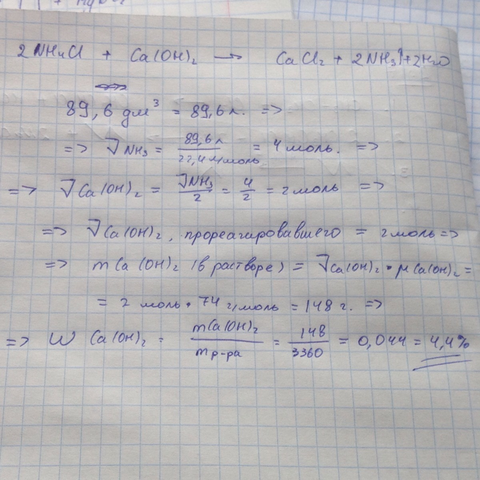 2NH₄Cl + Ca(OH)₂ → CaCl₂ + 2NH₃↑+2H₂O
89,6 дм³ = 89,6 л. =>
=> ν NH₃ = 89,6 л / 22,4 л/моль = 4 моль. =>
=> ν Ca(OH)₂ = ν NH₃ / 2 = 4/2 = 2 моль =>
=> ν Ca(OH)₂, прореагировавшего = 2 моль =>
=> m Ca(OH)₂ (в растворе) = ν Ca(OH)₂ • μ Ca(OH)₂ =
= 2 моль • 74 г/моль = 148 г. =>
=> W Ca(OH)₂ = m Ca(OH)₂ / m р-ра = 148/3360 = 0,044 = 4,4%